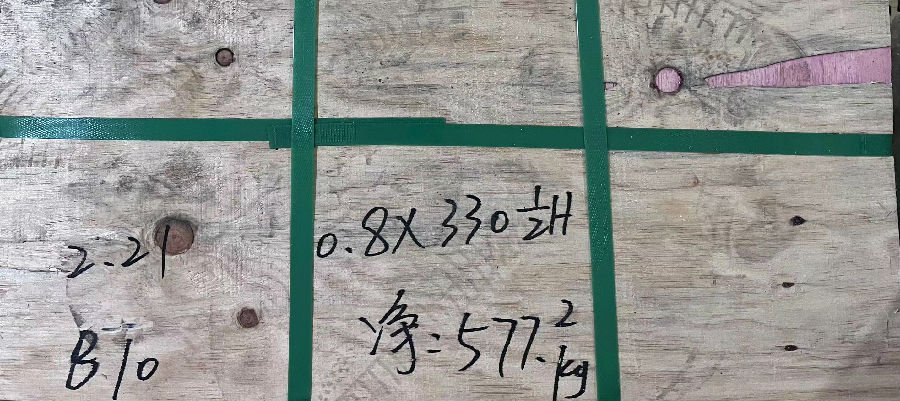 2.21
B.10
0.8X 330 ½H
净:577.2kg